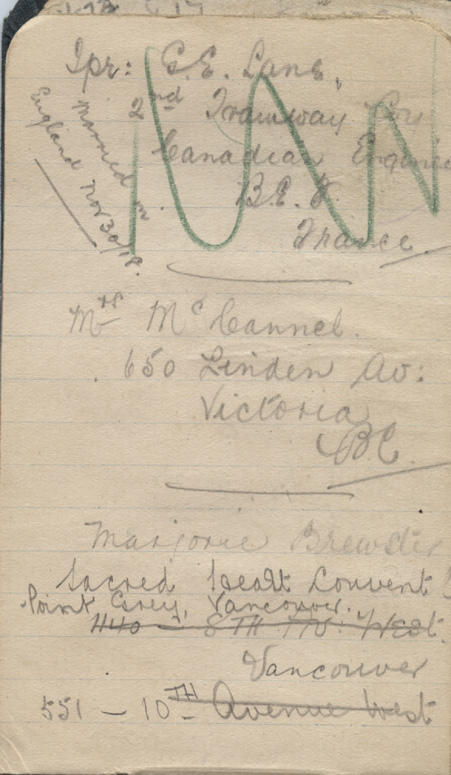 Spr: G.E. Lane,
2nd Tramway Coy
Canadian Engine
B.E.F.
France
Married in
England Nov 30/18.
Mrs McCannel.
650 Linden Av:
Victoria
BC
Marjorie Brewster
Sacred Heart Convent
Point Grey, Vancouver.
440 - 8TH Av. West.
Vancouver
551 - 10TH Avenue West